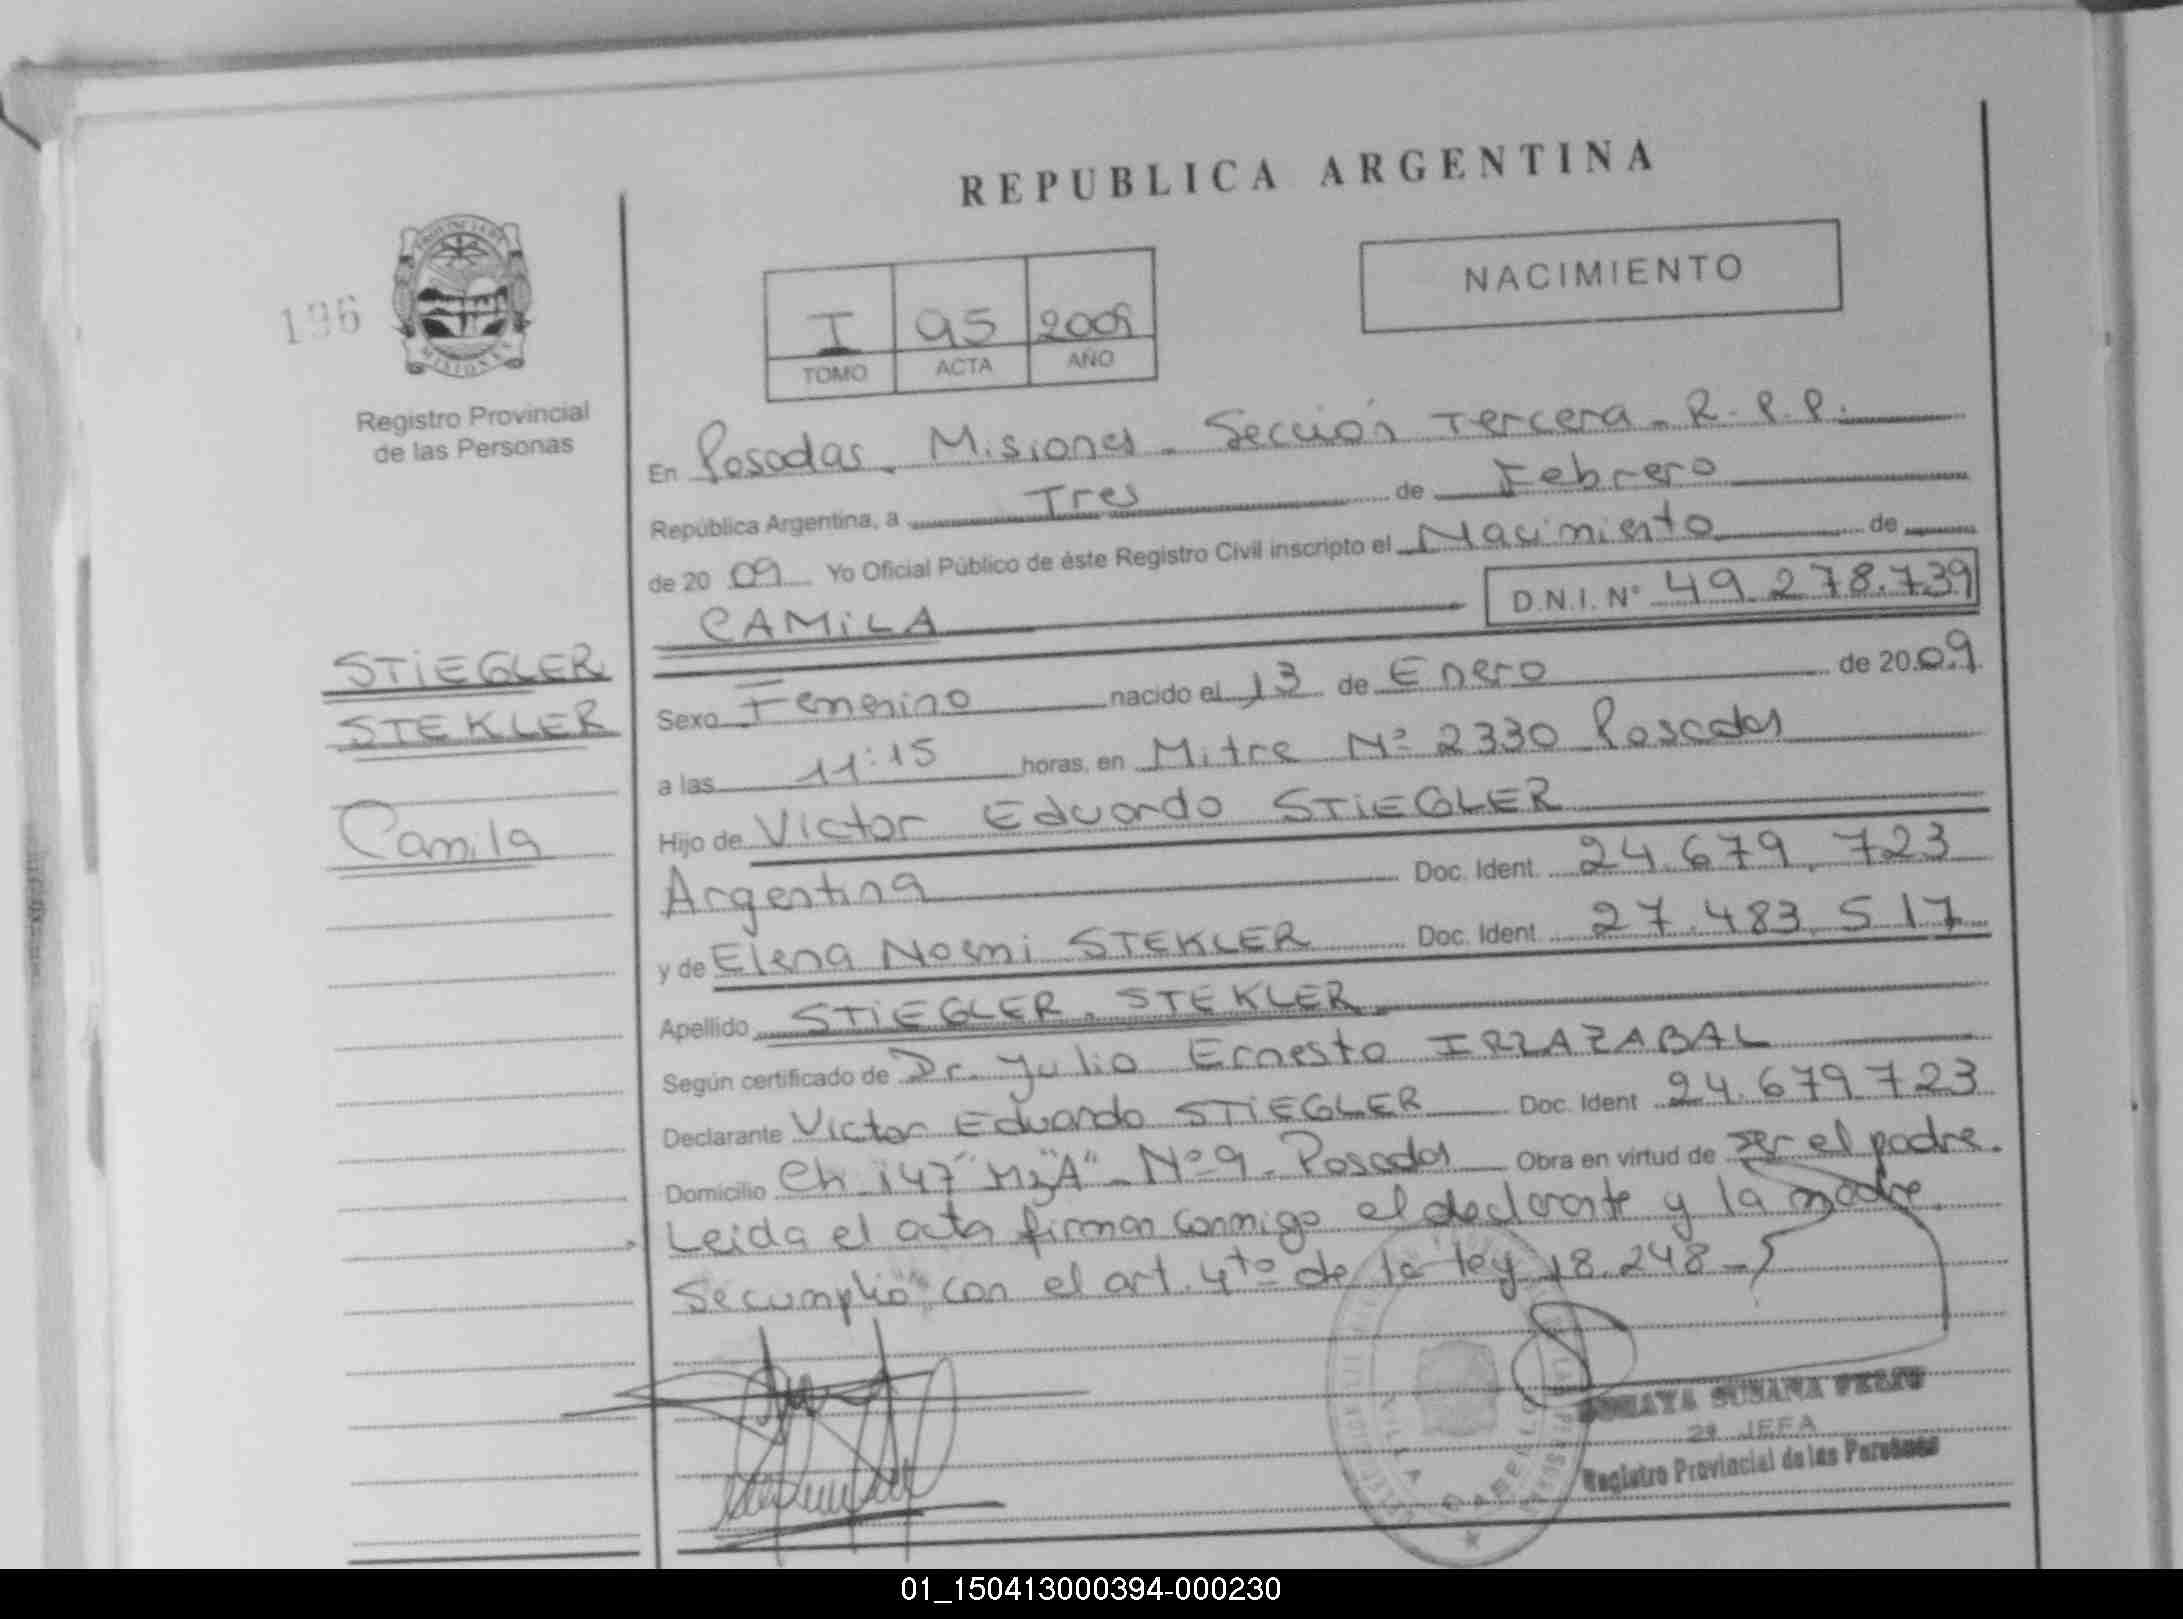 REPUBLICA ARGENTINA
NACIMIENTO
196
PROVINCIA DE
MISIONES
I 95 2009
TOMO ACTA AÑO
Registro Provincial
de las Personas
En Posadas. Misiones. Sección Tercera. R.P.P.
República Argentina, a Tres de Febrero
de 20 09 Yo Oficial Público de éste Registro Civil inscripto el Nacimiento de
CAMiLA D.N.I. Nº 49.278.739
STiEGLER
STEKLER
Camila
Sexo Femenino nacido el 13 de Enero de 20 09
a las 11:15 horas, en Mitre Nº 2330 Posadas
Hijo de Victor Eduardo STiEGLER
Argentina Doc. Ident. 24.679.723
y de Elena Noemi STEKLER Doc. Ident. 27.483.517
Apellido STiEGLER. STEKLER.
Según certificado de Dr. Julio Ernesto IRZAZABAL
Declarante Victor Eduardo STiEGLER Doc. Ident 24.679.723
Domicilio Ch 147 Mz "A" - Nº 9 - Posadas Obra en virtud de ser el padre.
Leida el acta firman conmigo el declarante y la madre.
Se cumplió con el art. 4to de la ley 18.248 -
SUSANA
2ª JEFA
Registro Provincial de las Personas
01_150413000394-000230